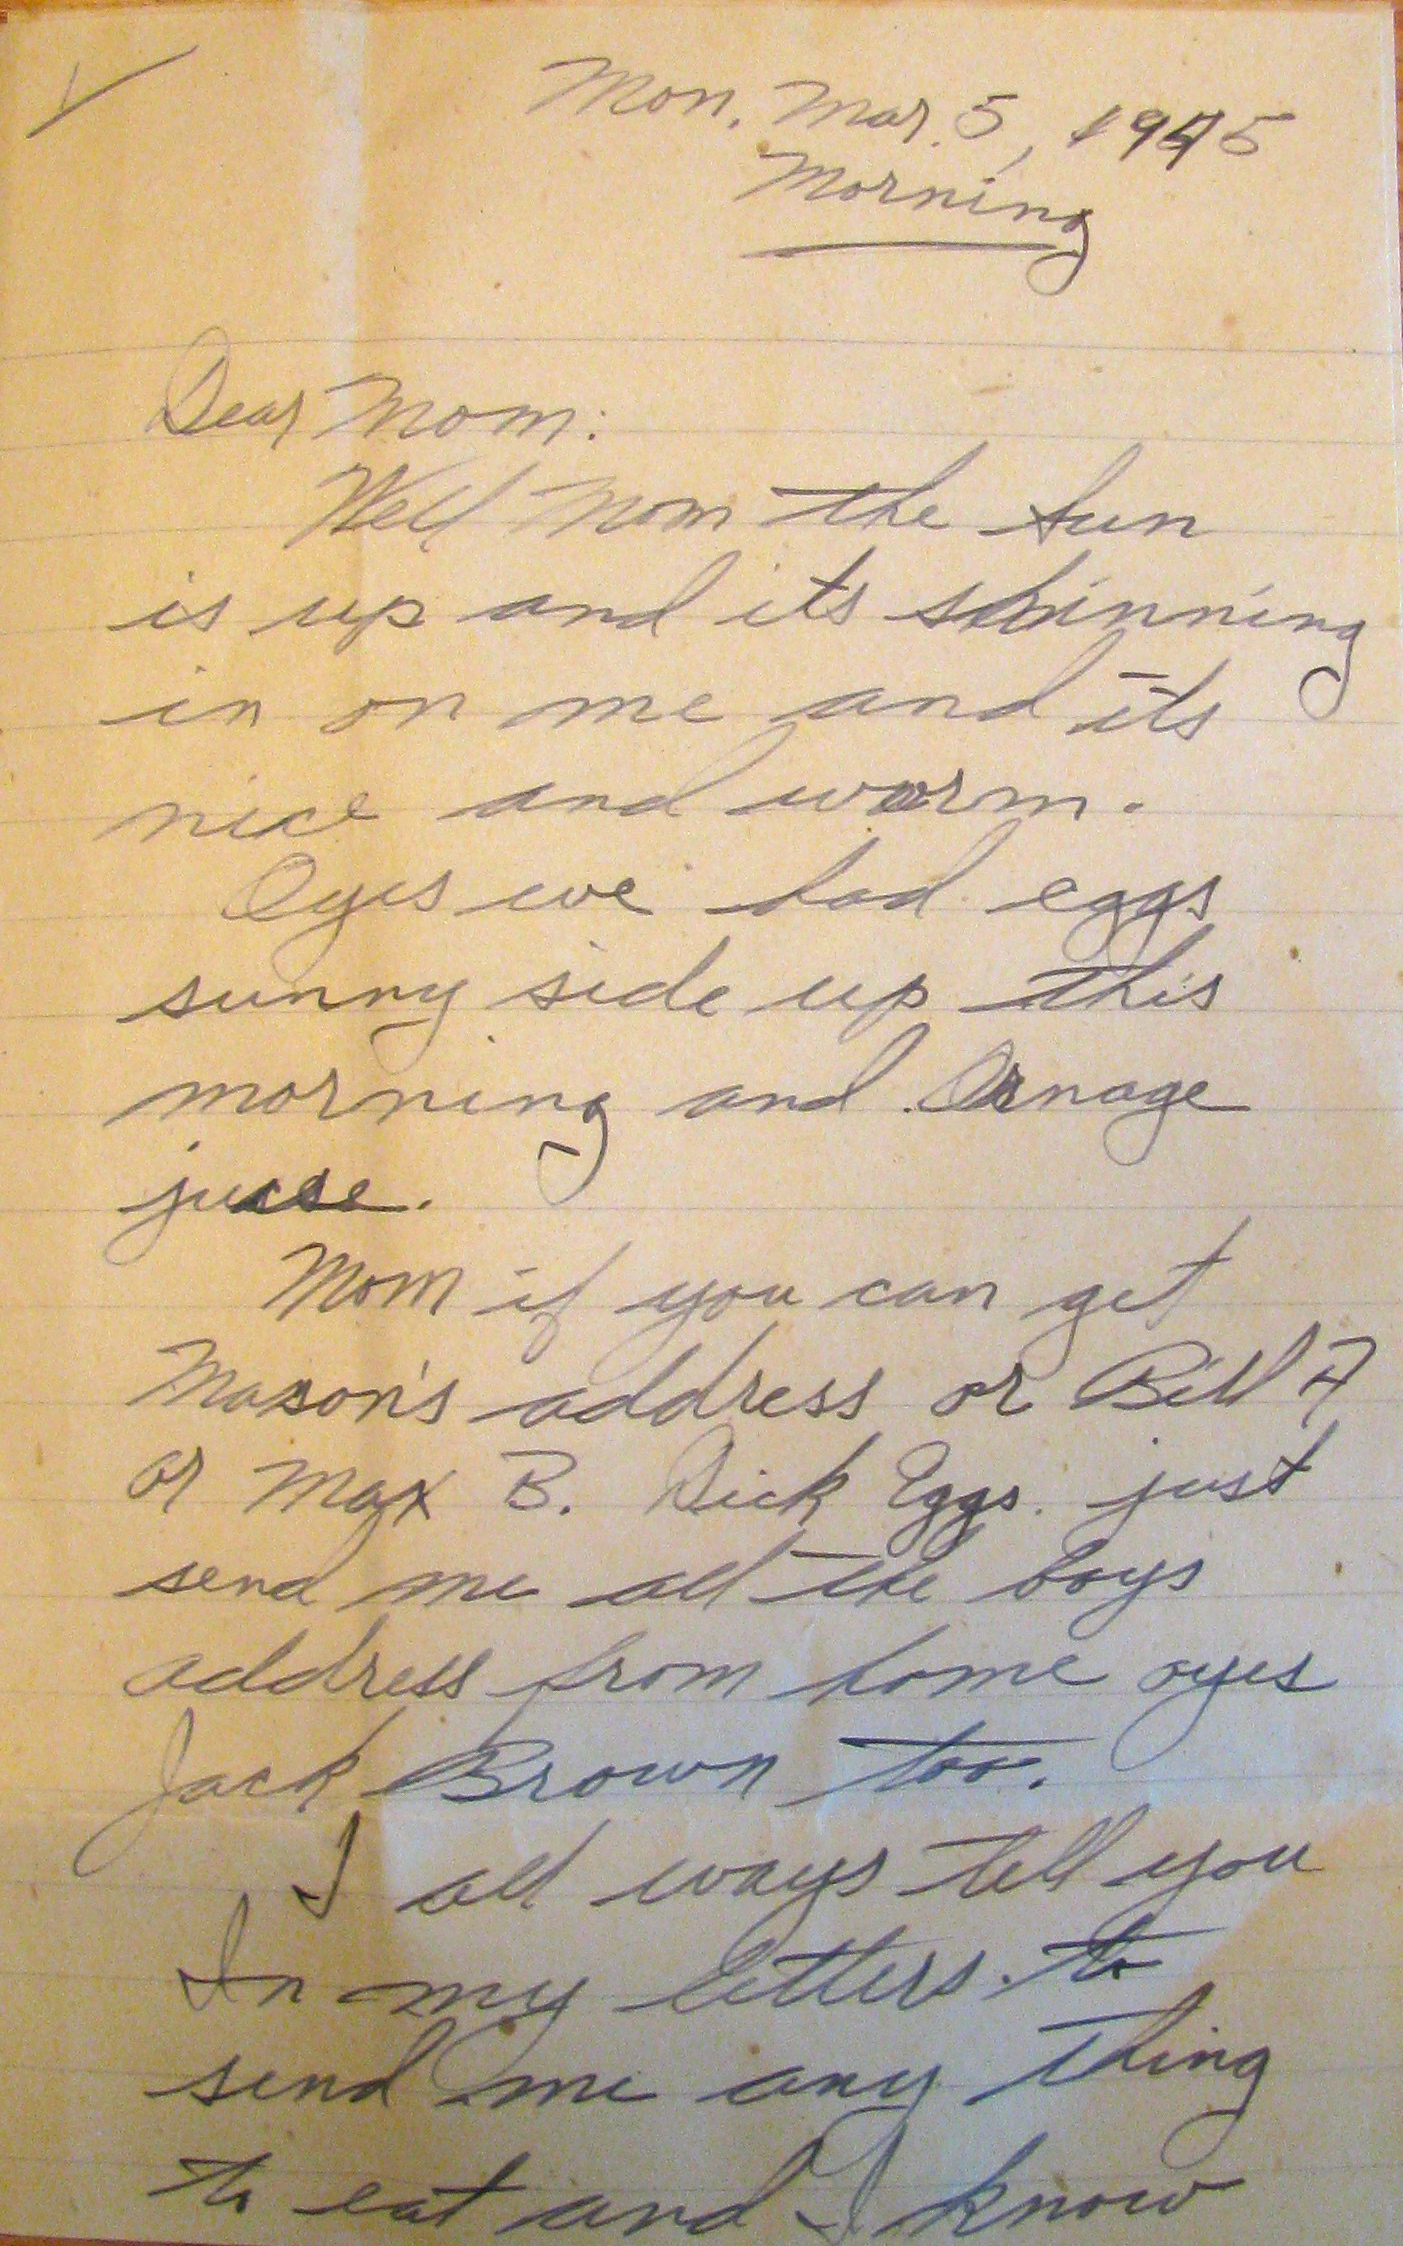 Mon. Mar. 5, 1945
Morning
Dear Mom:
Well Mom the sun
is up and its shinning
in on me and its
nice and warm.
Oyes we had eggs
sunny side up this
morning and Ornage
juice.
Mom if you can get
Mason's address or Bill
or Max B. Dick Eggs. just
send me all the boys
address from home oyes
Jack Brown too.
I all ways tell you
In my letters to
send me any thing
to eat and I know